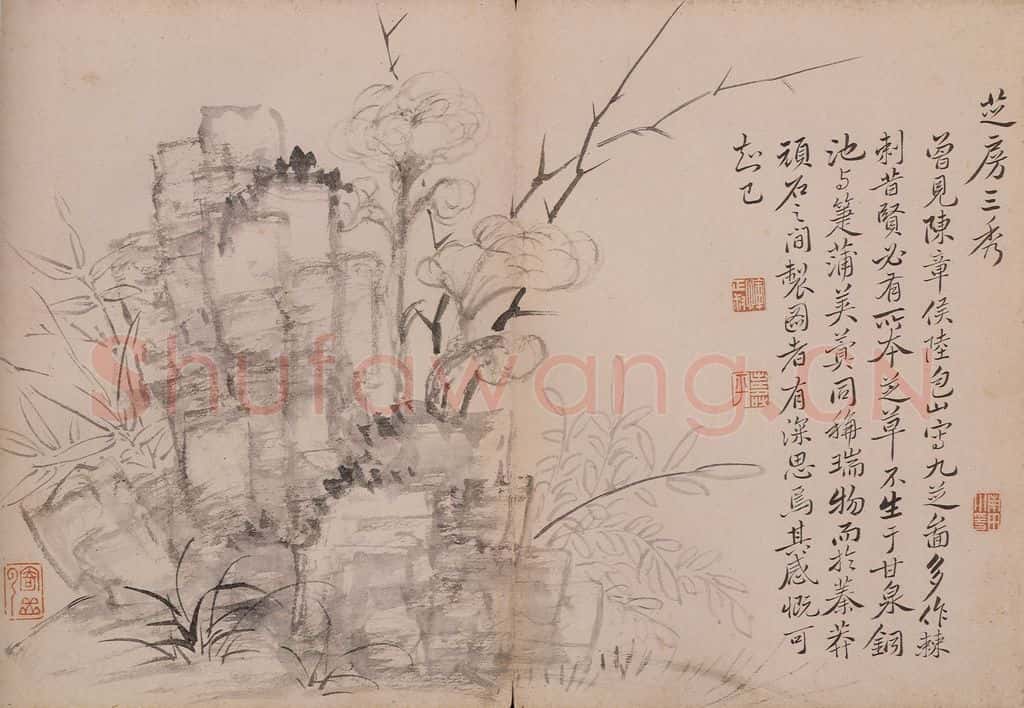 芝房三秀
曾見陳章侯陸包山寫九芝圖多作棘
刺昔賢必有所本芝草不生于甘泉銅
池与箑蒲莢蓂同稱瑞物而於蓁莽
頑石之間製圖者有深思焉其感慨可
知已
Shufawang.CN